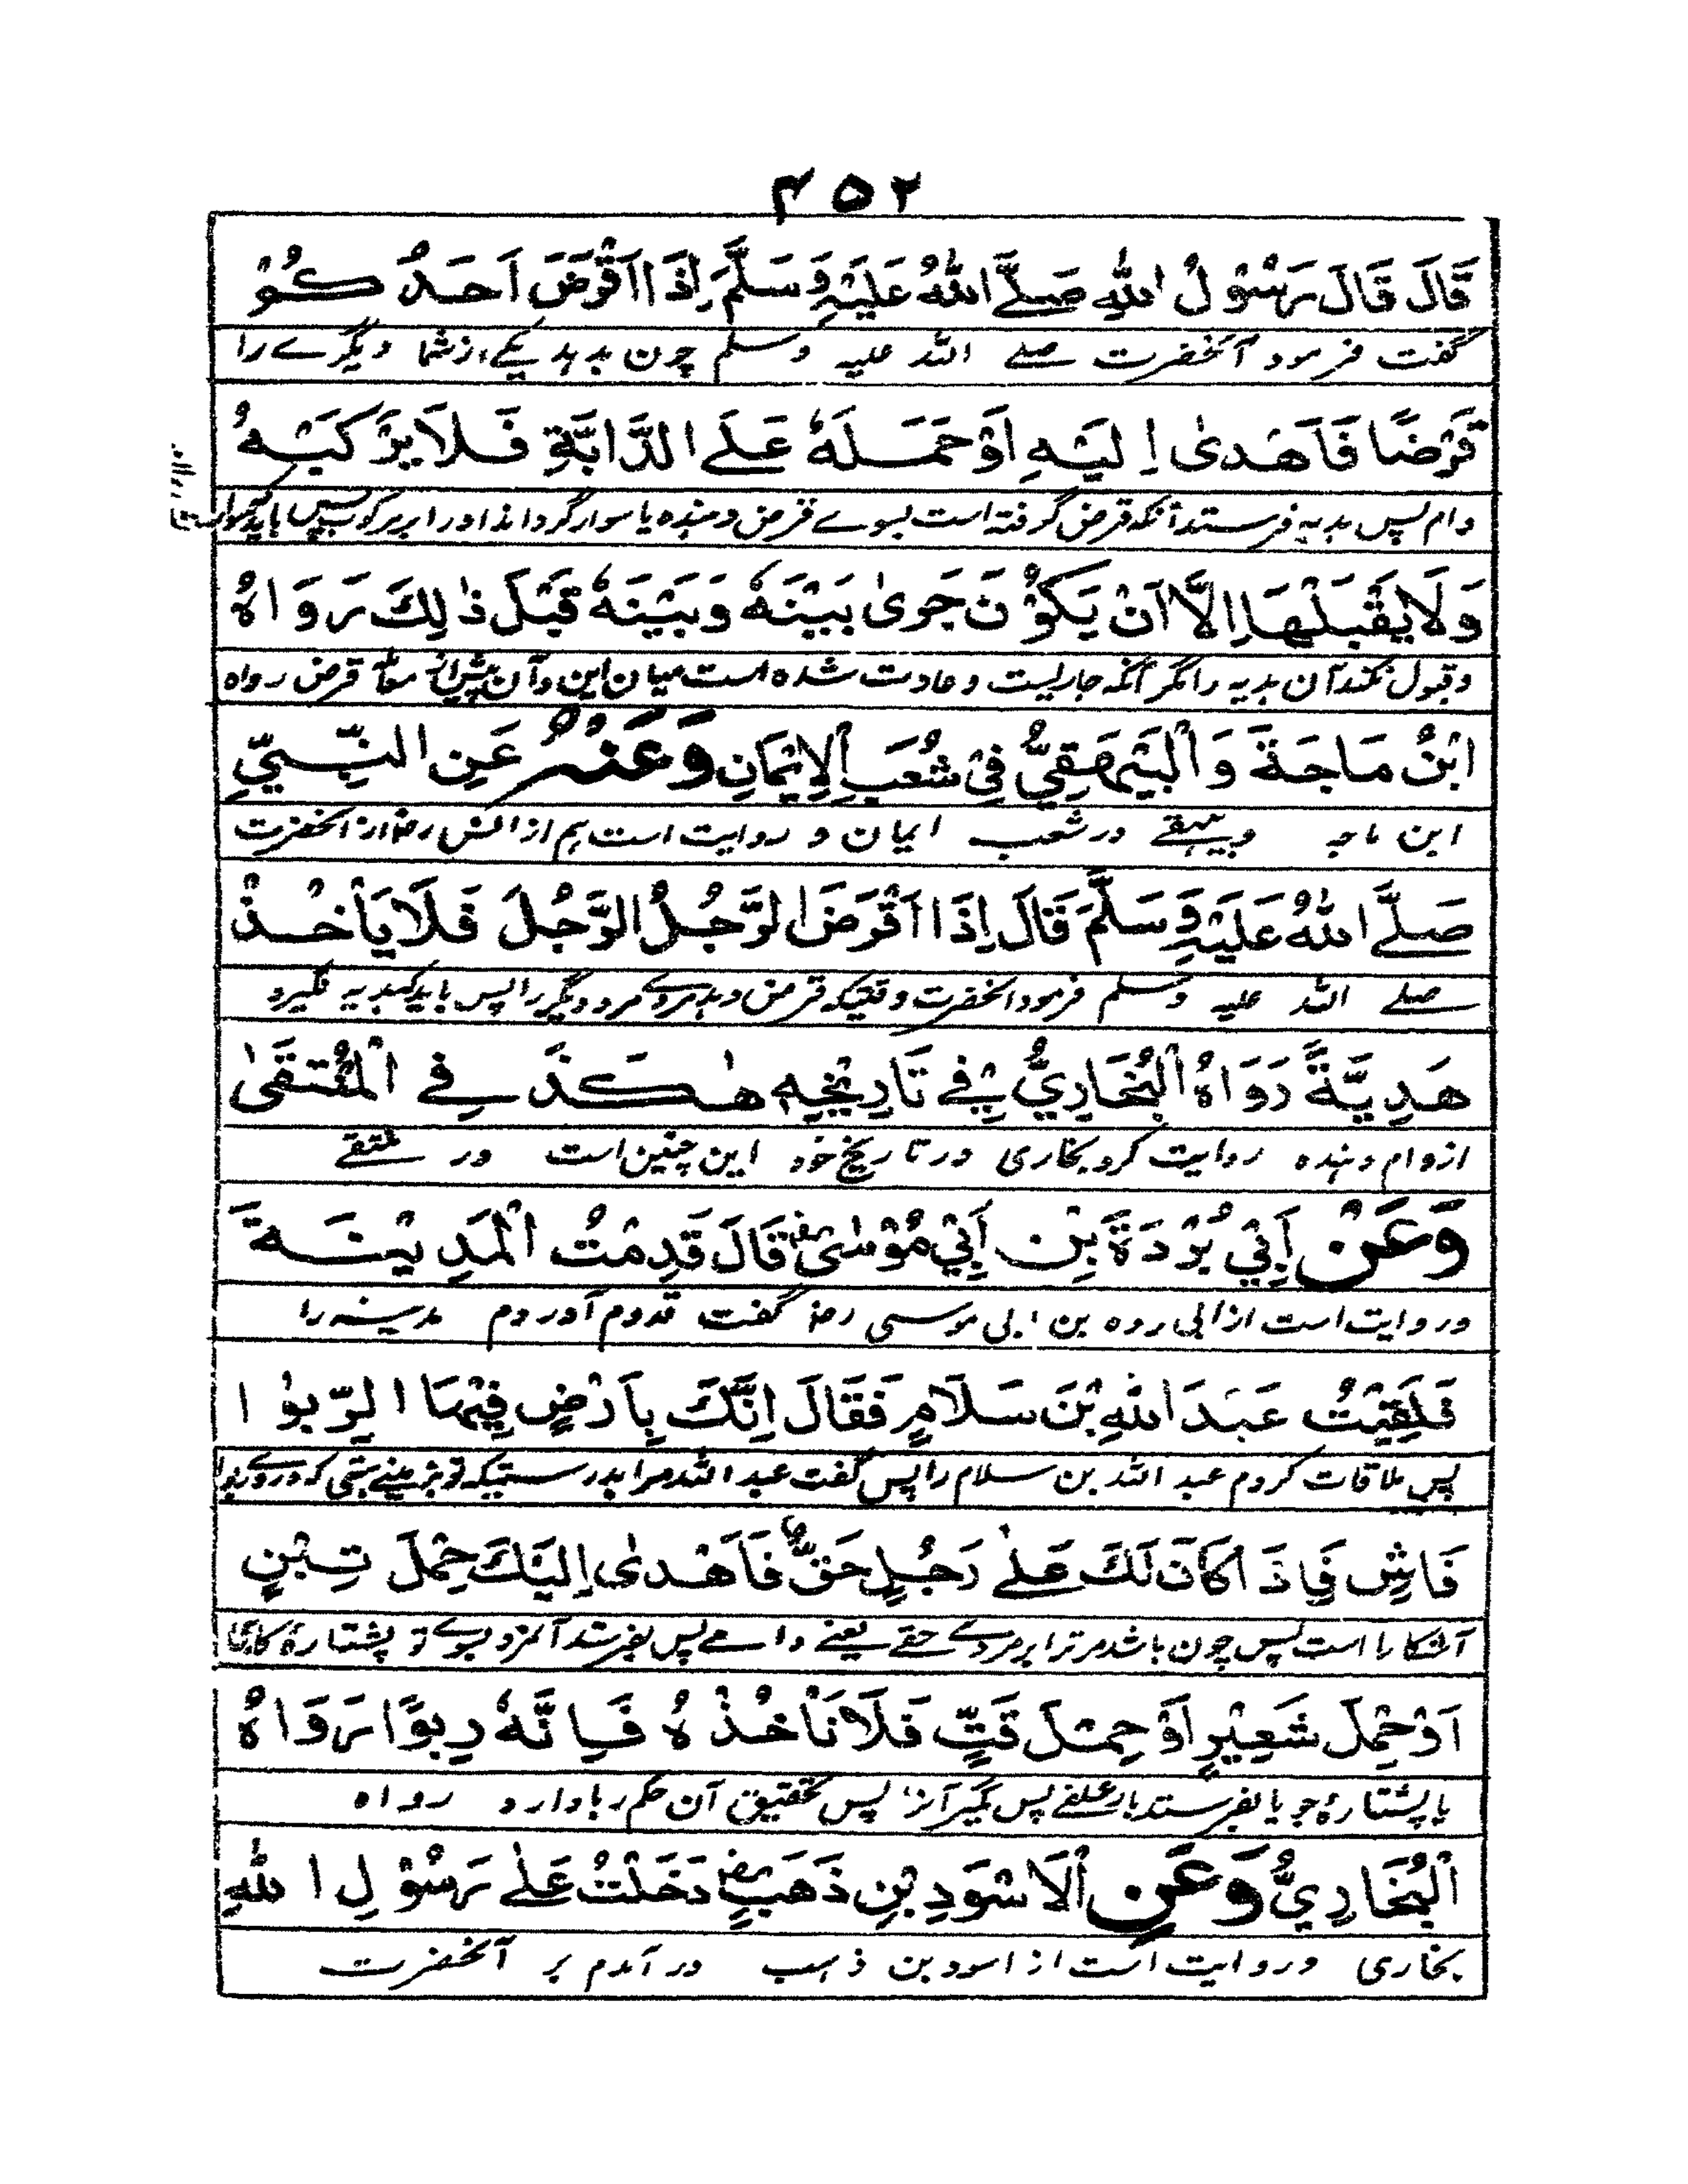 ۴۵۲
قَالَ قَالَ رَسُوْلُ اللهِ صَلَّے اللهُ عَلَيْهِ وَسَلَّمَ اِذَا اَقْرَضَ اَحَدُ كُمْ
گفت فرمود آنحضرت صلے اللہ علیہ وسلم چون بدہد یکے از شما دیگرے را
قَرْضًا فَاَهْدىٰ اِلَيْهِ اَوْ حَمَلَهٗ عَلَے الدَّابَّةِ فَلَا يَرْكَبْهُ
وام پس ہدیہ فرستد آنکہ قرض گرفتہ است بسوے قرض دہندہ یا سوار گرداند او را بر مرکوب پس باید کہ
وَلَا يَقْبَلْهَا اِلَّا اَنْ يَكُوْنَ جَرىٰ بَيْنَهٗ وَبَيْنَهٗ قَبْلَ ذٰلِكَ رَوَاهُ
و قبول نکند آن ہدیہ را مگر آنکہ جاریست و عادت شدہ است میان این و آن پیش از قرض رواہ
ابْنُ مَاجَةَ وَالْبَيْهَقِيُّ فِيْ شُعَبِ الْاِيْمَانِ وَعَنْهُ عَنِ النَّبِيِّ
ابن ماجہ و بیہقے در شعب ایمان و روایت است ہم از انس رضہ از آنحضرت
صَلَّے اللهُ عَلَيْهِ وَسَلَّمَ قَالَ اِذَا اَقْرَضَ الرَّجُلُ الرَّجُلَ فَلَا يَأْخُذْ
صلے اللہ علیہ وسلم فرمود آنحضرت وقتیکہ قرض دہد مردے مرد دیگر را پس باید کہ ہدیہ نگیرد
هَدِيَّةً رَوَاهُ الْبُخَارِيُّ فِے تَارِيْخِهٖ هٰكَذَ فِے الْمُنْتَقىٰ
از وام دہندہ روایت کرد بخاری در تاریخ خود این چنین است در منتقے
وَعَنْ اَبِيْ بُرْدَةَ بْنِ اَبِيْ مُوْسىٰ رض قَالَ قَدِمْتُ الْمَدِيْنَةَ
و روایت است از ابی روہ بن ابی موسی رضہ گفت قدوم آوردم مدینہ را
فَلَقِيْتُ عَبْدَ اللهِ بْنَ سَلَامٍ فَقَالَ اِنَّكَ بِاَرْضٍ فِيْهَا الرِّبٰوا
پس ملاقات کردم عبد اللہ بن سلام را پس گفت عبد اللہ مرا بدرستیکہ تو بزمینے ہستی کہ دروے ربوا
فَاشٍ فَاِذَ اكَانَ لَكَ عَلٰے رَجُلٍ حَقٌّ فَاَهْدىٰ اِلَيْكَ حِمْلَ تِبْنٍ
آشکارا است پس چون باشد مر ترا بر مردے حقے یعنے وامے پس بفرستد آنمرد بسوے تو پشتارۂ کاہ
اَوْ حِمْلَ شَعِيْرٍ اَوْ حِمْلَ قَتٍّ فَلَا تَأْخُذْهُ فَاِنَّهٗ رِبوًا رَوَاهُ
یا پشتارۂ جو یا بفرستد بار علفے پس مگیر آنرا پس تحقیق آن حکم ربا دارد رواہ
الْبُخَارِيُّ وَعَنِ الْاَسْوَدِ بْنِ ذَهَبٍ رض دَخَلْتُ عَلٰے رَسُوْلِ اللهِ
بخاری و روایت است از اسود بن ذہب در آمدم بر آنحضرت